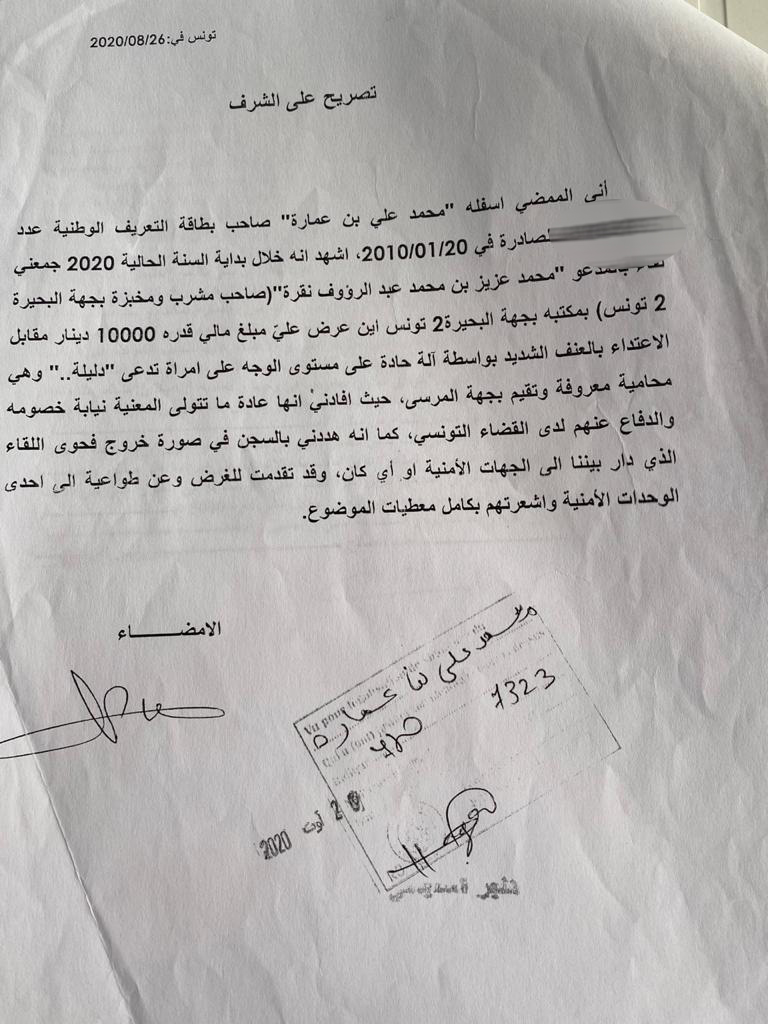 تونس في:2020/08/26
تصريح على الشرف
أنى الممضي اسفله "محمد علي بن عمارة" صاحب بطاقة التعريف الوطنية عدد
الصادرة في 2010/01/20، اشهد انه خلال بداية السنة الحالية 2020 جمعني
لقاء بالمدعو "محمد عزيز بن محمد عبد الرؤوف نقرة"(صاحب مشرب ومخبزة بجهة البحيرة
2 تونس) بمكتبه بجهة البحيرة2 تونس اين عرض عليّ مبلغ مالي قدره 10000 دينار مقابل
الاعتداء بالعنف الشديد بواسطة آلة حادة على مستوى الوجه على امراة تدعى "دليلة.." وهي
محامية معروفة وتقيم بجهة المرسى، حيث افادنيْ انها عادة ما تتولى المعنية نيابة خصومه
والدفاع عنهم لدى القضاء التونسي، كما انه هددني بالسجن في صورة خروج فحوى اللقاء
الذي دار بيننا الى الجهات الأمنية او أي كان، وقد تقدمت للغرض وعن طواعية الى احدى
الوحدات الأمنية واشعرتهم بكامل معطيات الموضوع.
الامضــــــــاء
محمد علي بن عمارة
7323
Vu pour
أوت 2020